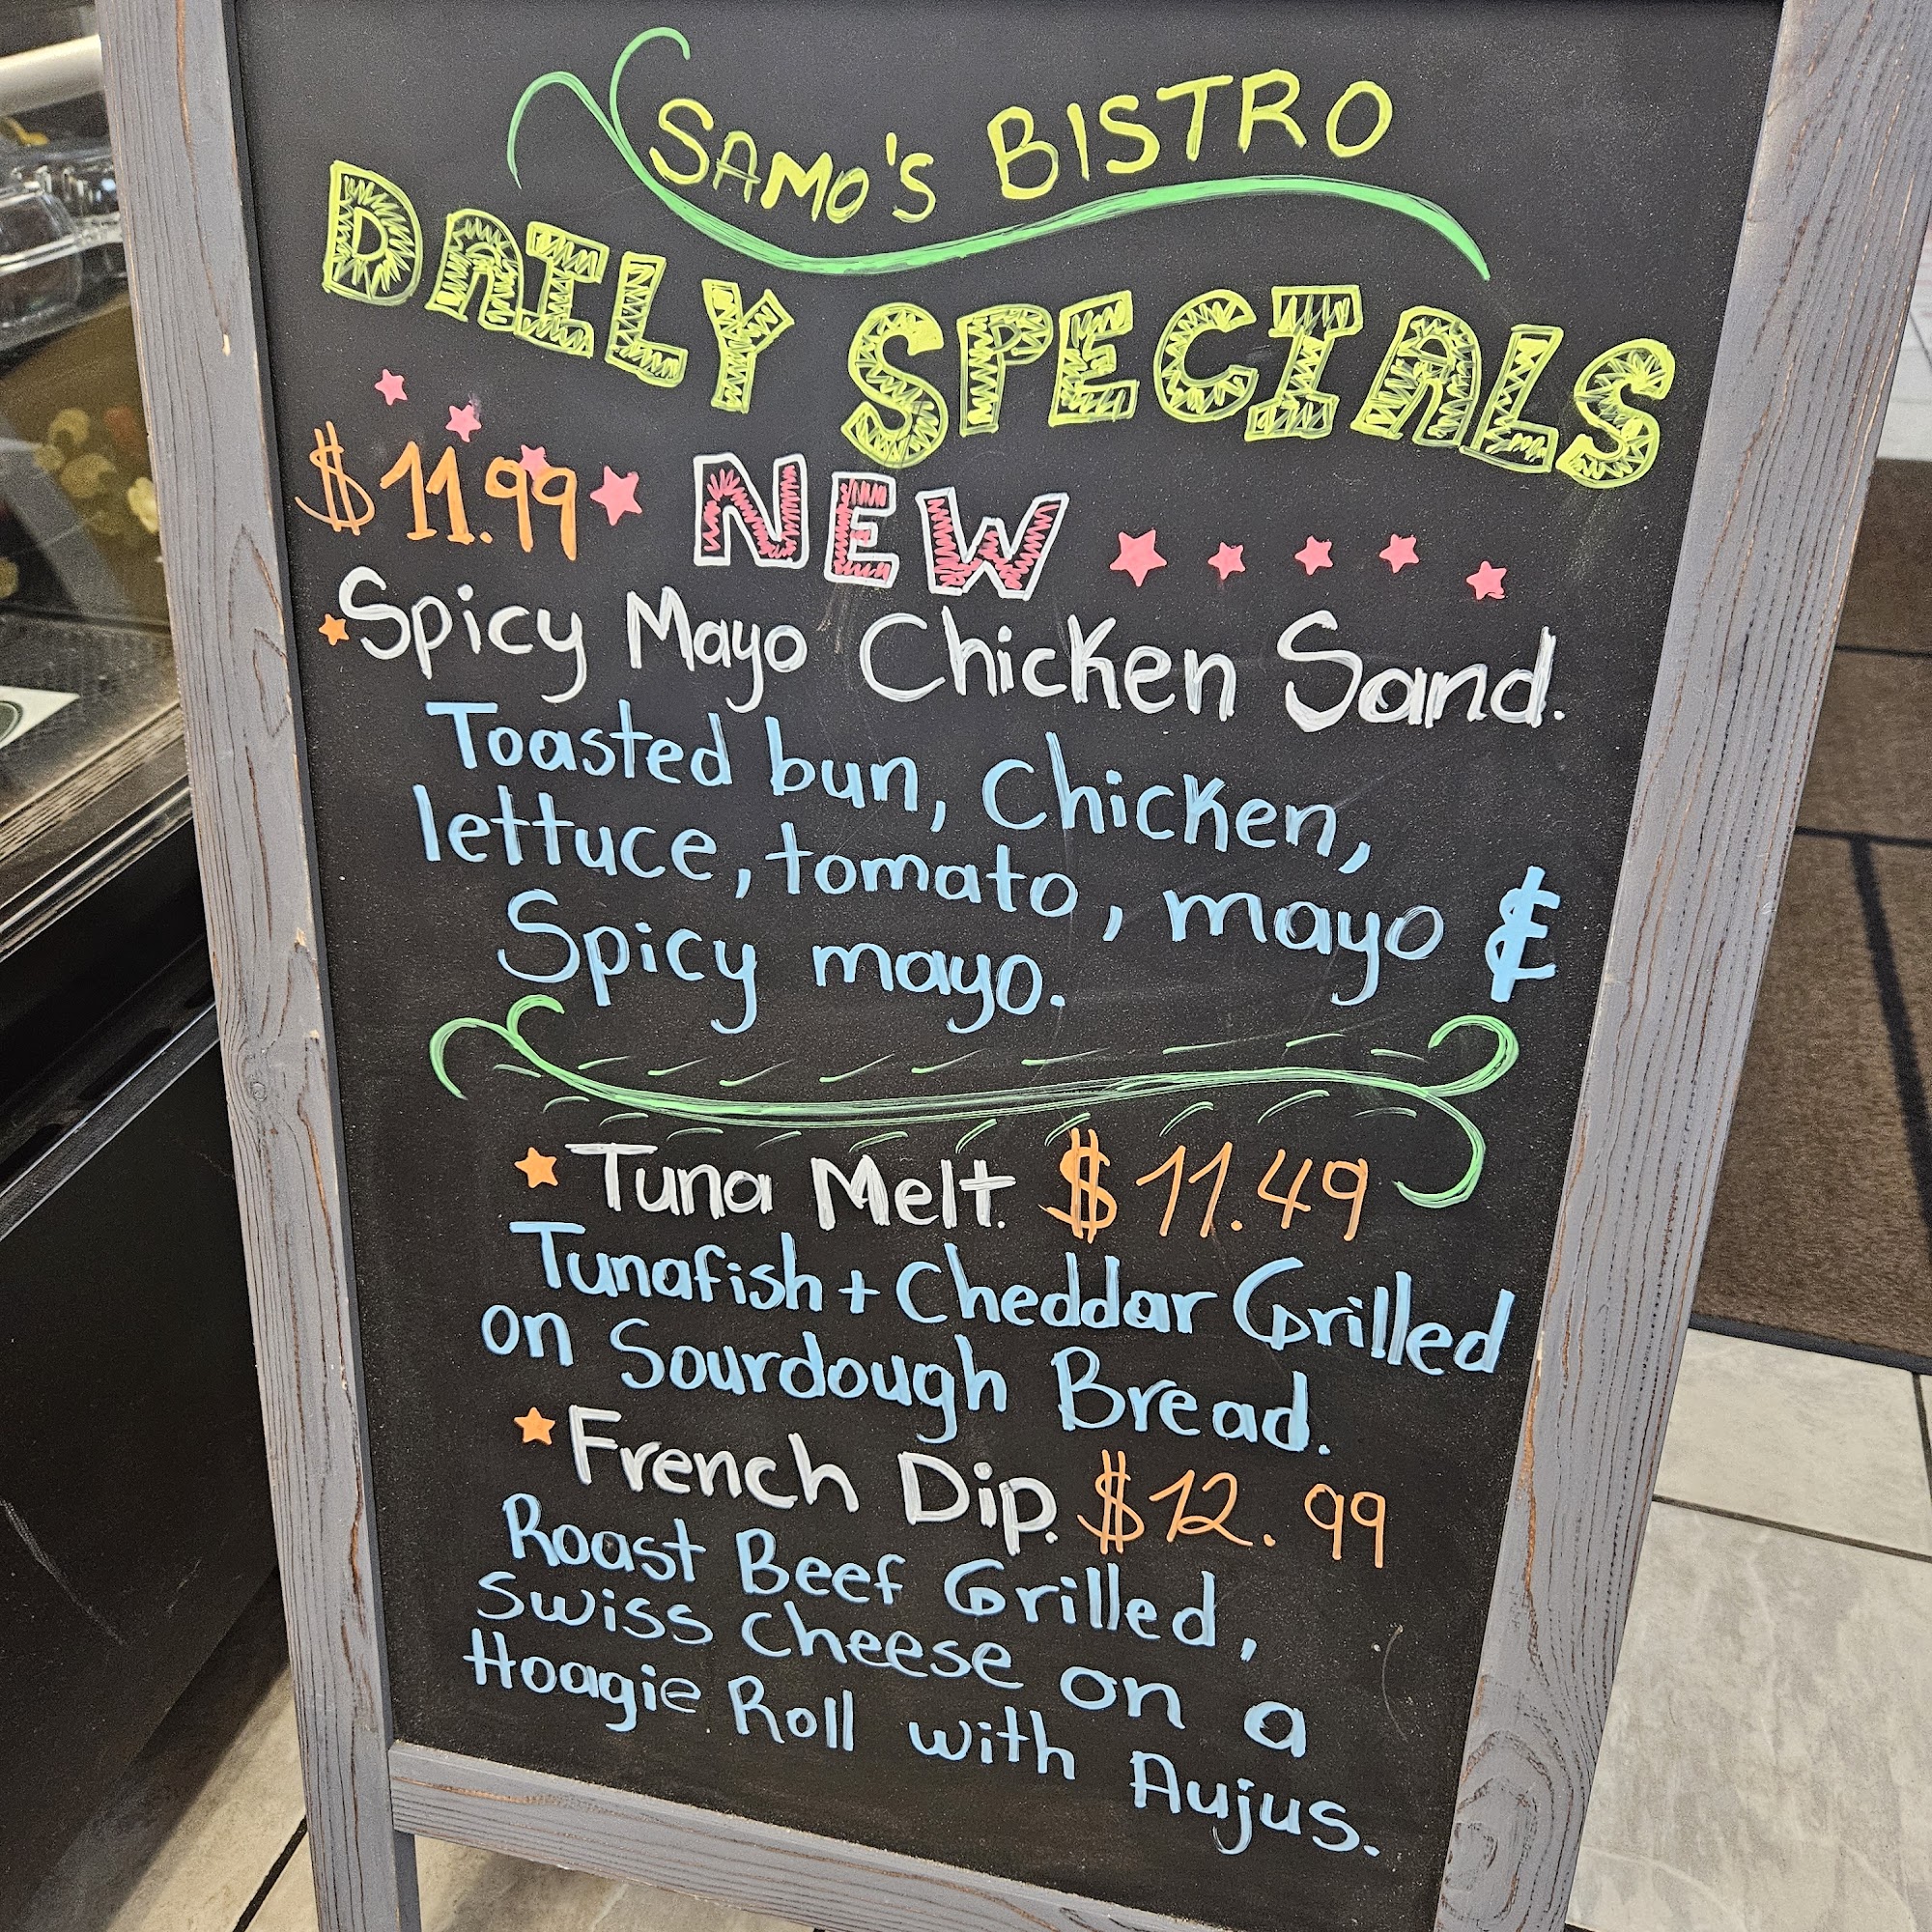 SAMO'S BISTRO
DAILY SPECIALS
$11.99 NEW
Spicy Mayo Chicken Sand.
Toasted bun, Chicken,
lettuce, tomato, mayo &
Spicy mayo.
Tuna Melt. $11.49
Tunafish + Cheddar Grilled
on Sourdough Bread.
French Dip. $12.99
Roast Beef Grilled,
Swiss Cheese on a
Hoagie Roll with Aujus.